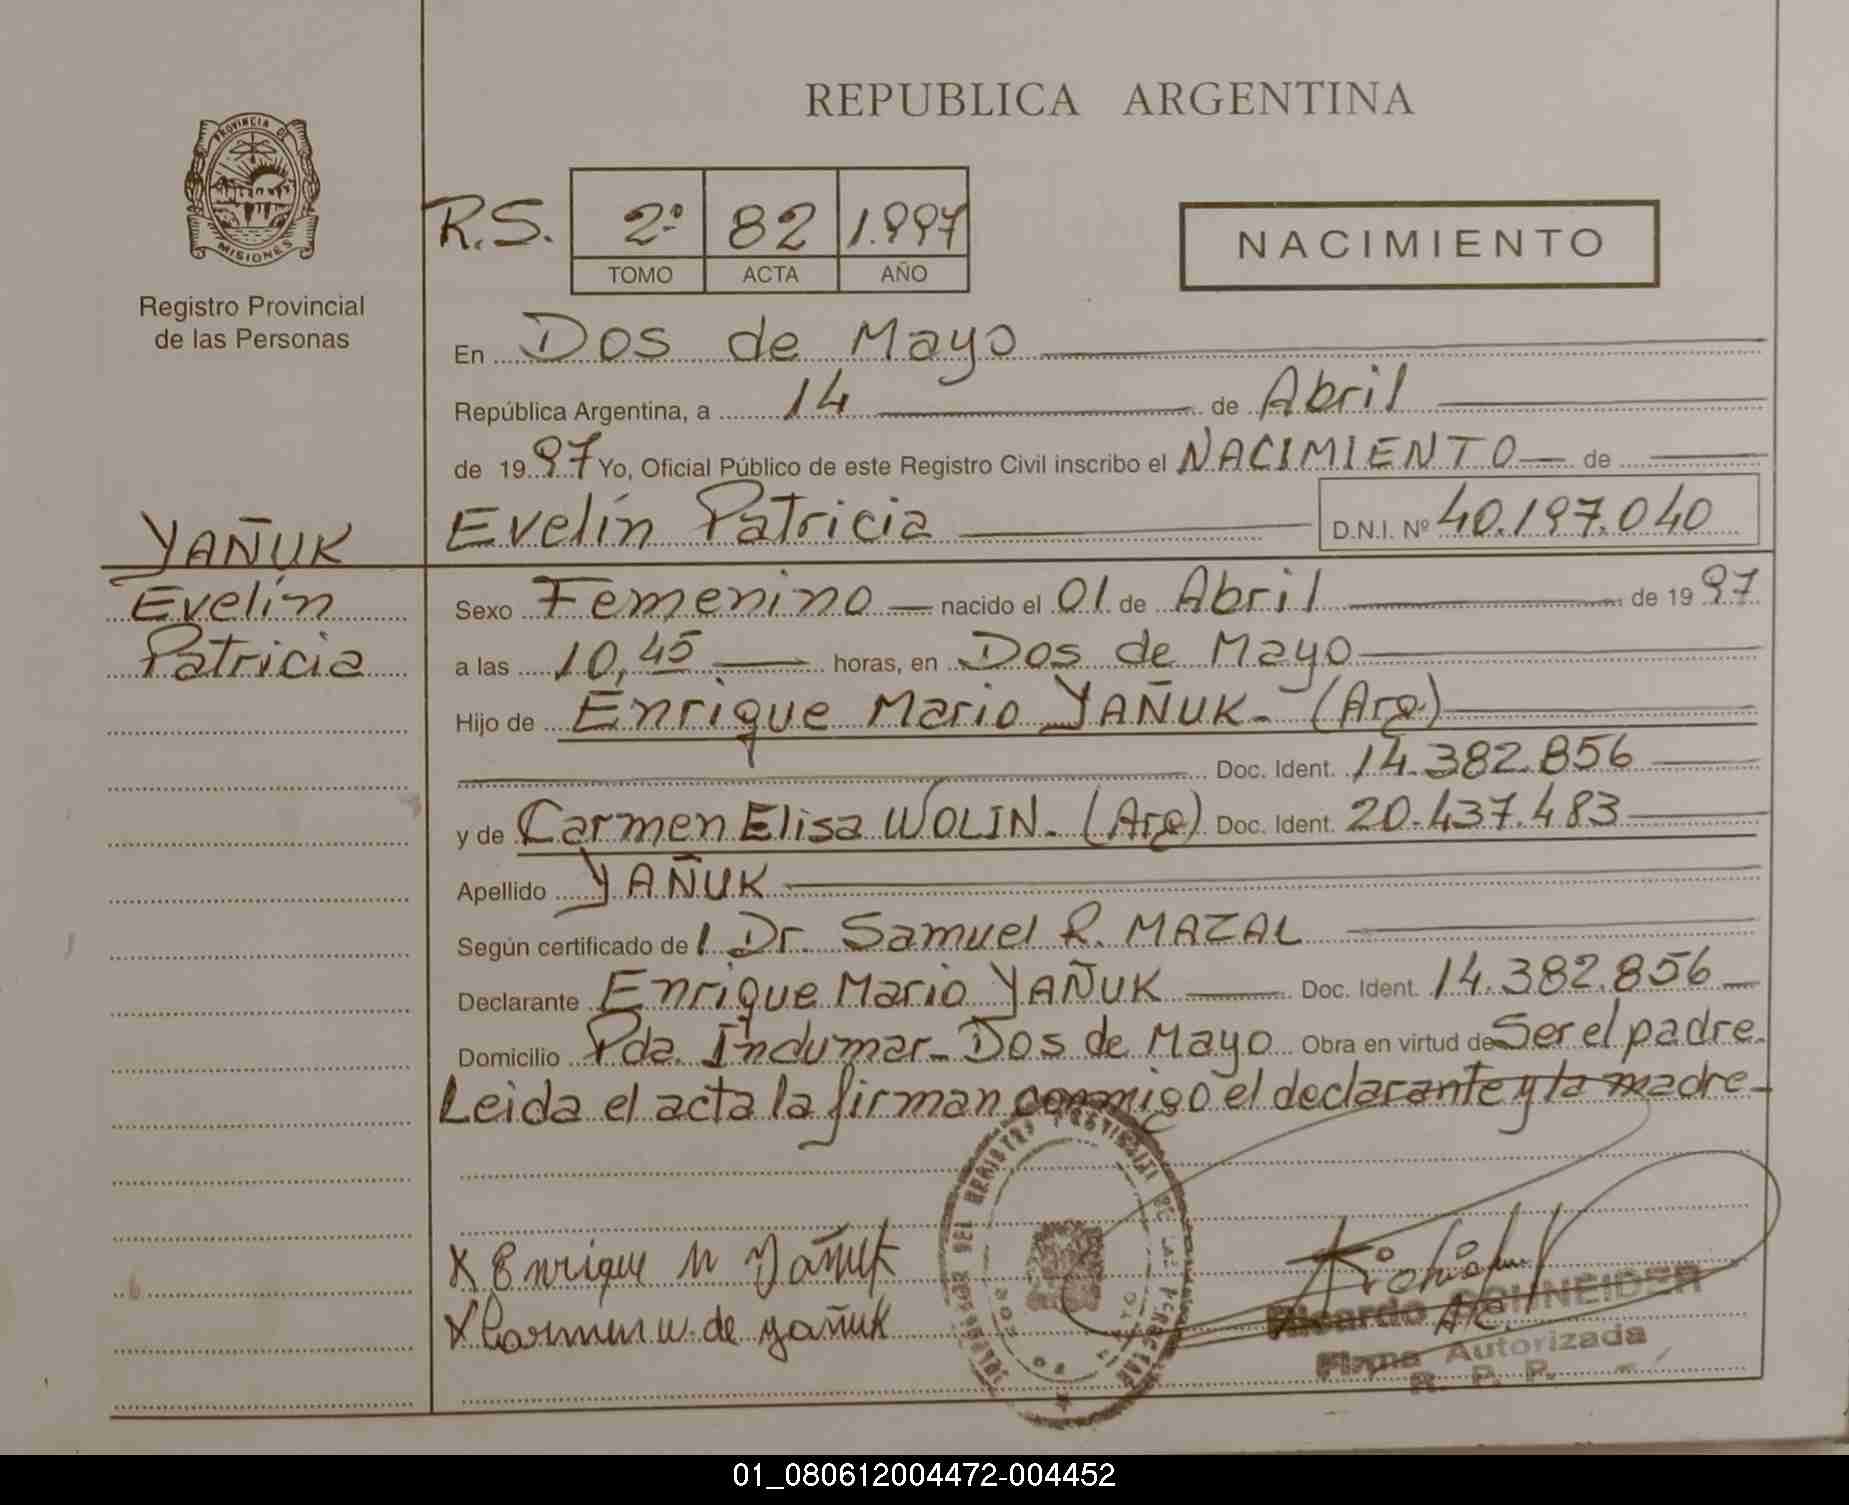 REPUBLICA ARGENTINA
PROVINCIA DE
MISIONES
Registro Provincial
de las Personas
R.S. 2º 82 1.997
TOMO ACTA AÑO
NACIMIENTO
En Dos de Mayo
República Argentina, a 14 de Abril
de 1997 Yo, Oficial Público de este Registro Civil inscribo el NACIMIENTO de
Evelín Patricia D.N.I. Nº 40.197.040
YAÑUK
Evelín
Patricia
Sexo Femenino nacido el 01 de Abril de 1997
a las 10,45 horas, en Dos de Mayo
Hijo de Enrique Mario YAÑUK- (Arg)
Doc. Ident. 14.382.856
y de Carmen Elisa WOLIN- (Arg) Doc. Ident. 20.437.483
Apellido YAÑUK
Según certificado del Dr. Samuel R. MAZAL
Declarante Enrique Mario YAÑUK Doc. Ident. 14.382.856
Domicilio Pda. Indumar- Dos de Mayo Obra en virtud de Ser el padre.
Leida el acta la firman conmigo el declarante y la madre-
X Enrique M Yañuk
X Carmen W. de yañuk
Ricardo SCHNEIDER
Firma Autorizada
R. P. P.
01_080612004472-004452